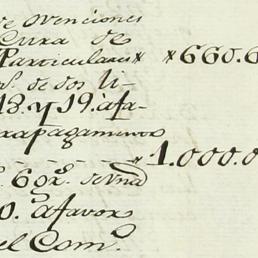 de ovenciones
Cura de
Particulares * * 660.6
s. de dos li-
18. y 19. afa-
xapagamentos
* 1.000.0
. 6 qx. se vna
0. afavor
el Com.º